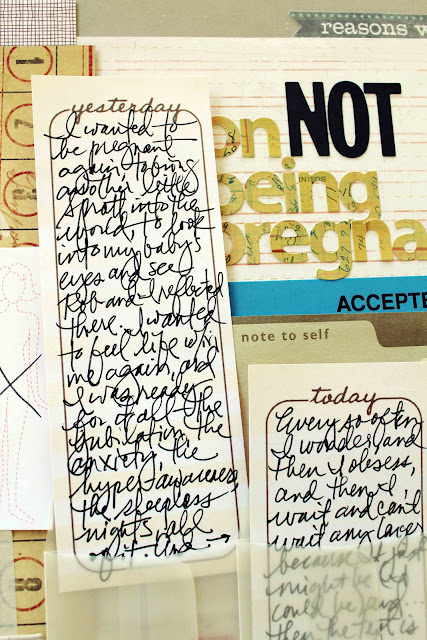 reasons w
on NOT
being
pregna
ACCEPTE
note to self
yesterday
I wanted to
be pregnant
again, to bring
another little
into the
world, to look
into my baby's
eyes and see
Rob and I reflected
there. I wanted
to feel life w/in
me again, and
I was ready
for it all. The
the
anxiety, the
hyper-awareness,
the sleepless
nights, all
of it.
today
Every so often
I wonder, and
then I obsess,
and then I
wait and can't
wait any longer
because it
might be
could be, and...
then the test is
8